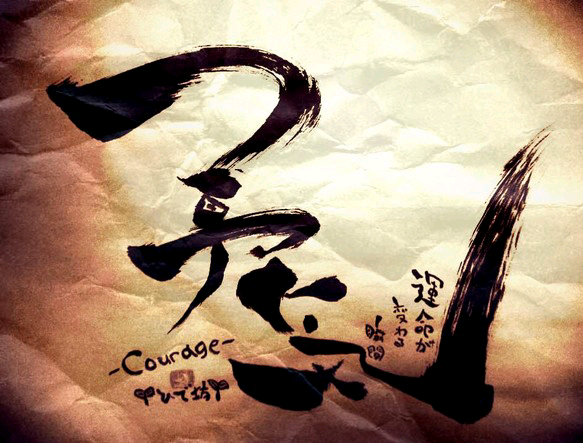 勇気
運命が
変わる
瞬間
-Courage-
ひで坊